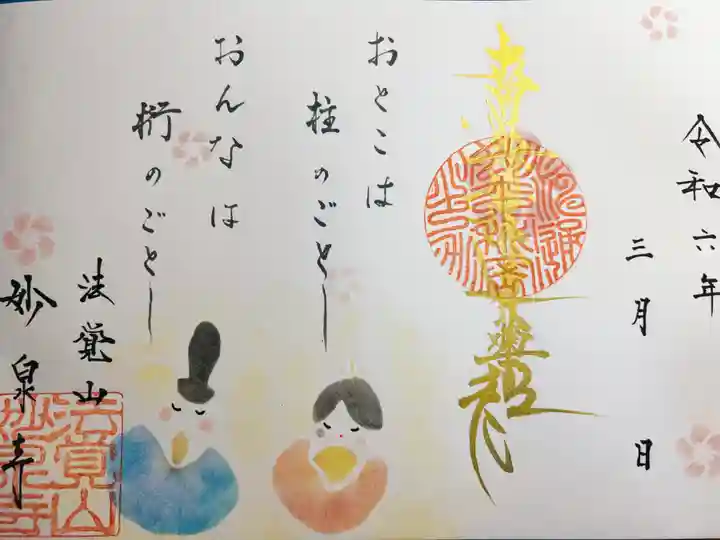 令和六年
三月 日
おとこは
柱のごとし
おんなは
桁のごとし
法覚山
妙泉寺
法覺山
妙泉寺